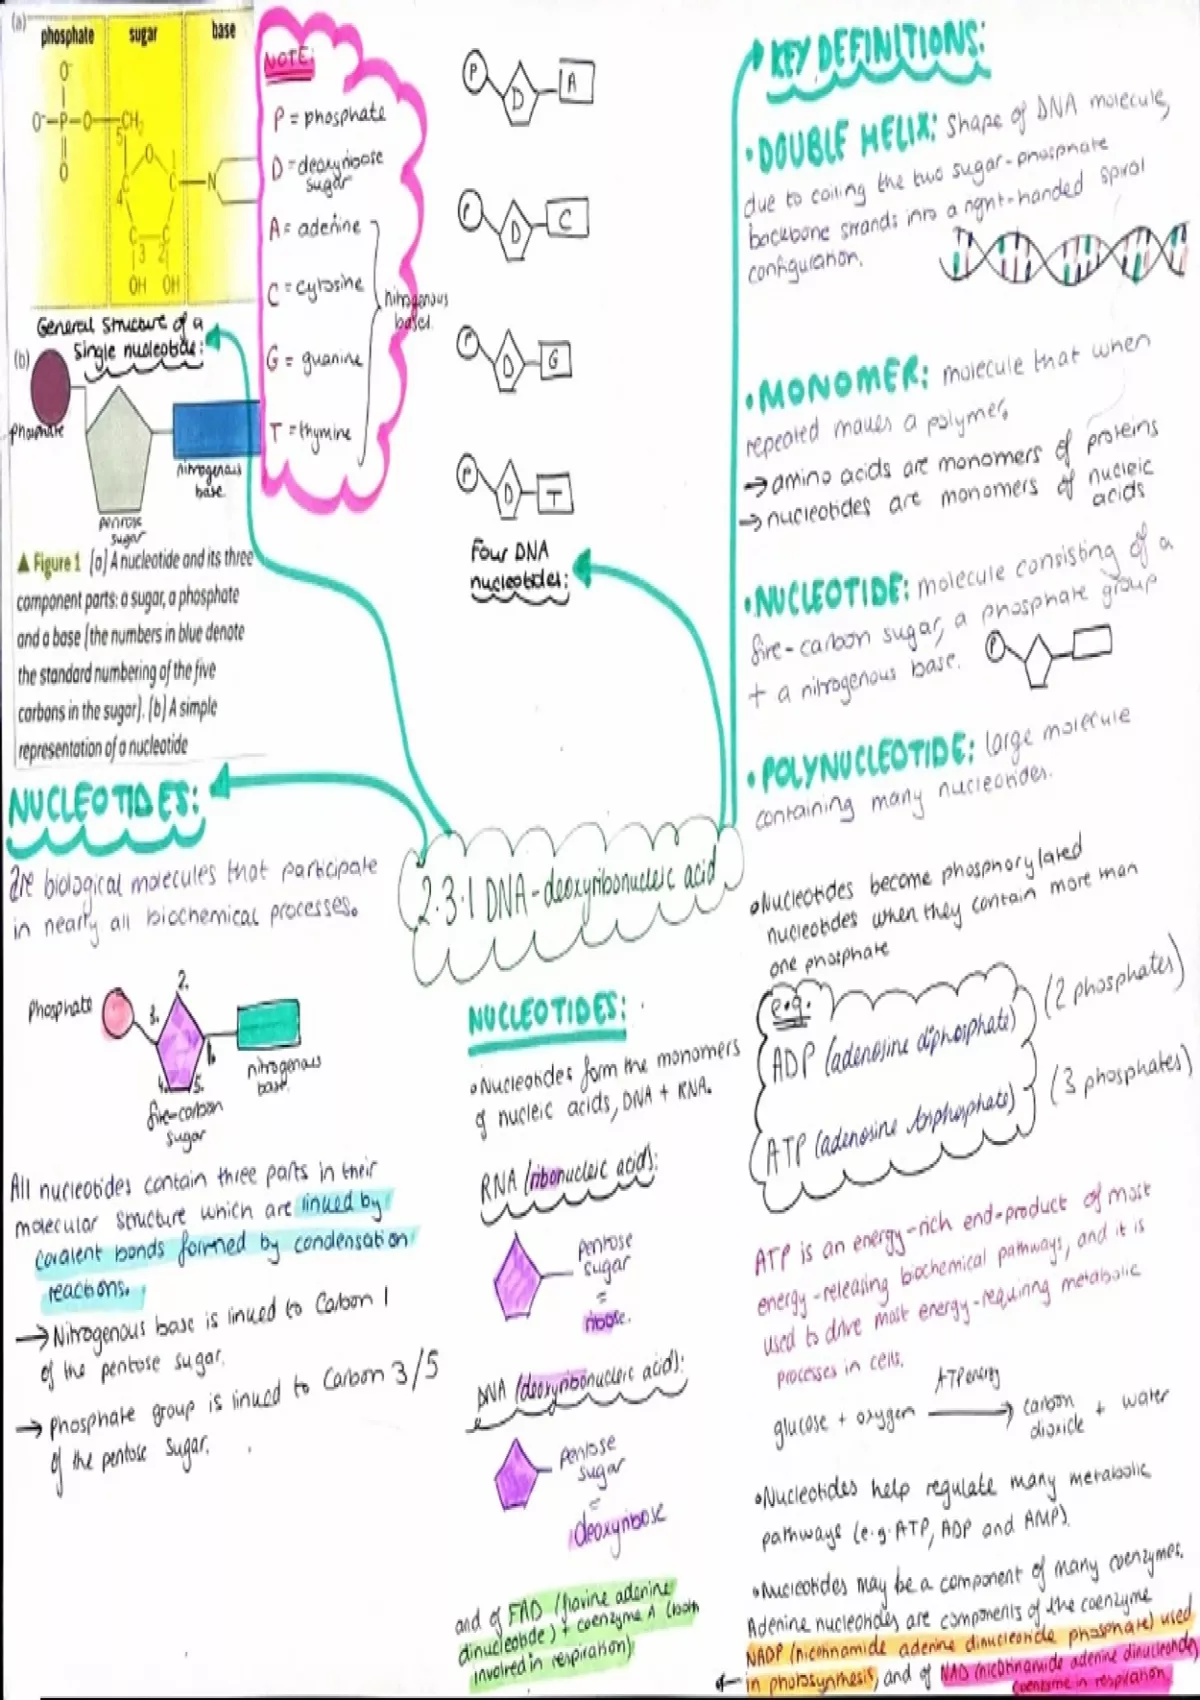 (a)
phosphate sugar base
O⁻
O⁻-P-O-CH₂
O
5
O
1
C
C
N
4
C C
3 2
OH OH
General structure of a
single nucleotide:
(b)
phosphate
nitrogenous
base
pentose
sugar
▲ Figure 1 (a) A nucleotide and its three
component parts: a sugar, a phosphate
and a base (the numbers in blue denote
the standard numbering of the five
carbons in the sugar). (b) A simple
representation of a nucleotide
NOTE:
P = phosphate
D = deoxyribose
sugar
A = adenine
C = cytosine
G = guanine
T = thymine
nitrogenous
bases
P D A
P D C
P D G
P D T
Four DNA
nucleotides:
KEY DEFINITIONS:
• DOUBLE HELIX: Shape of DNA molecule,
due to coiling the two sugar-phosphate
backbone strands into a right-handed spiral
configuration.
• MONOMER: molecule that when
repeated makes a polymer.
→ amino acids are monomers of proteins
→ nucleotides are monomers of nucleic
acids
• NUCLEOTIDE: molecule consisting of a
five-carbon sugar, a phosphate group
+ a nitrogenous base.
P
• POLYNUCLEOTIDE: large molecule
containing many nucleotides.
NUCLEOTIDES:
are biological molecules that participate
in nearly all biochemical processes.
phosphate
2.
3.
1.
4.
5.
nitrogenous
base.
five-carbon
sugar
All nucleotides contain three parts in their
molecular structure which are linked by
covalent bonds formed by condensation
reactions.
→ Nitrogenous base is linked to Carbon 1
of the pentose sugar.
→ Phosphate group is linked to Carbon 3/5
of the pentose sugar.
2.3.1 DNA - deoxyribonucleic acid
NUCLEOTIDES:
• Nucleotides form the monomers
of nucleic acids, DNA + RNA.
RNA (ribonucleic acid):
pentose
sugar
=
ribose.
DNA (deoxyribonucleic acid):
pentose
sugar
=
deoxyribose
and of FAD (flavine adenine
dinucleotide) + coenzyme A (both
involved in respiration)
• Nucleotides become phosphorylated
nucleotides when they contain more than
one phosphate
e.g.
ADP (adenosine diphosphate) (2 phosphates)
ATP (adenosine triphosphate) (3 phosphates)
ATP is an energy-rich end-product of most
energy-releasing biochemical pathways, and it is
used to drive most energy-requiring metabolic
processes in cells.
ATP energy
glucose + oxygen → carbon dioxide + water
• Nucleotides help regulate many metabolic
pathways (e.g. ATP, ADP and AMP).
• Nucleotides may be a component of many coenzymes.
Adenine nucleotides are components of the coenzyme
NADP (nicotinamide adenine dinucleotide phosphate) used
in photosynthesis, and of NAD (nicotinamide adenine dinucleotide)
coenzyme in respiration